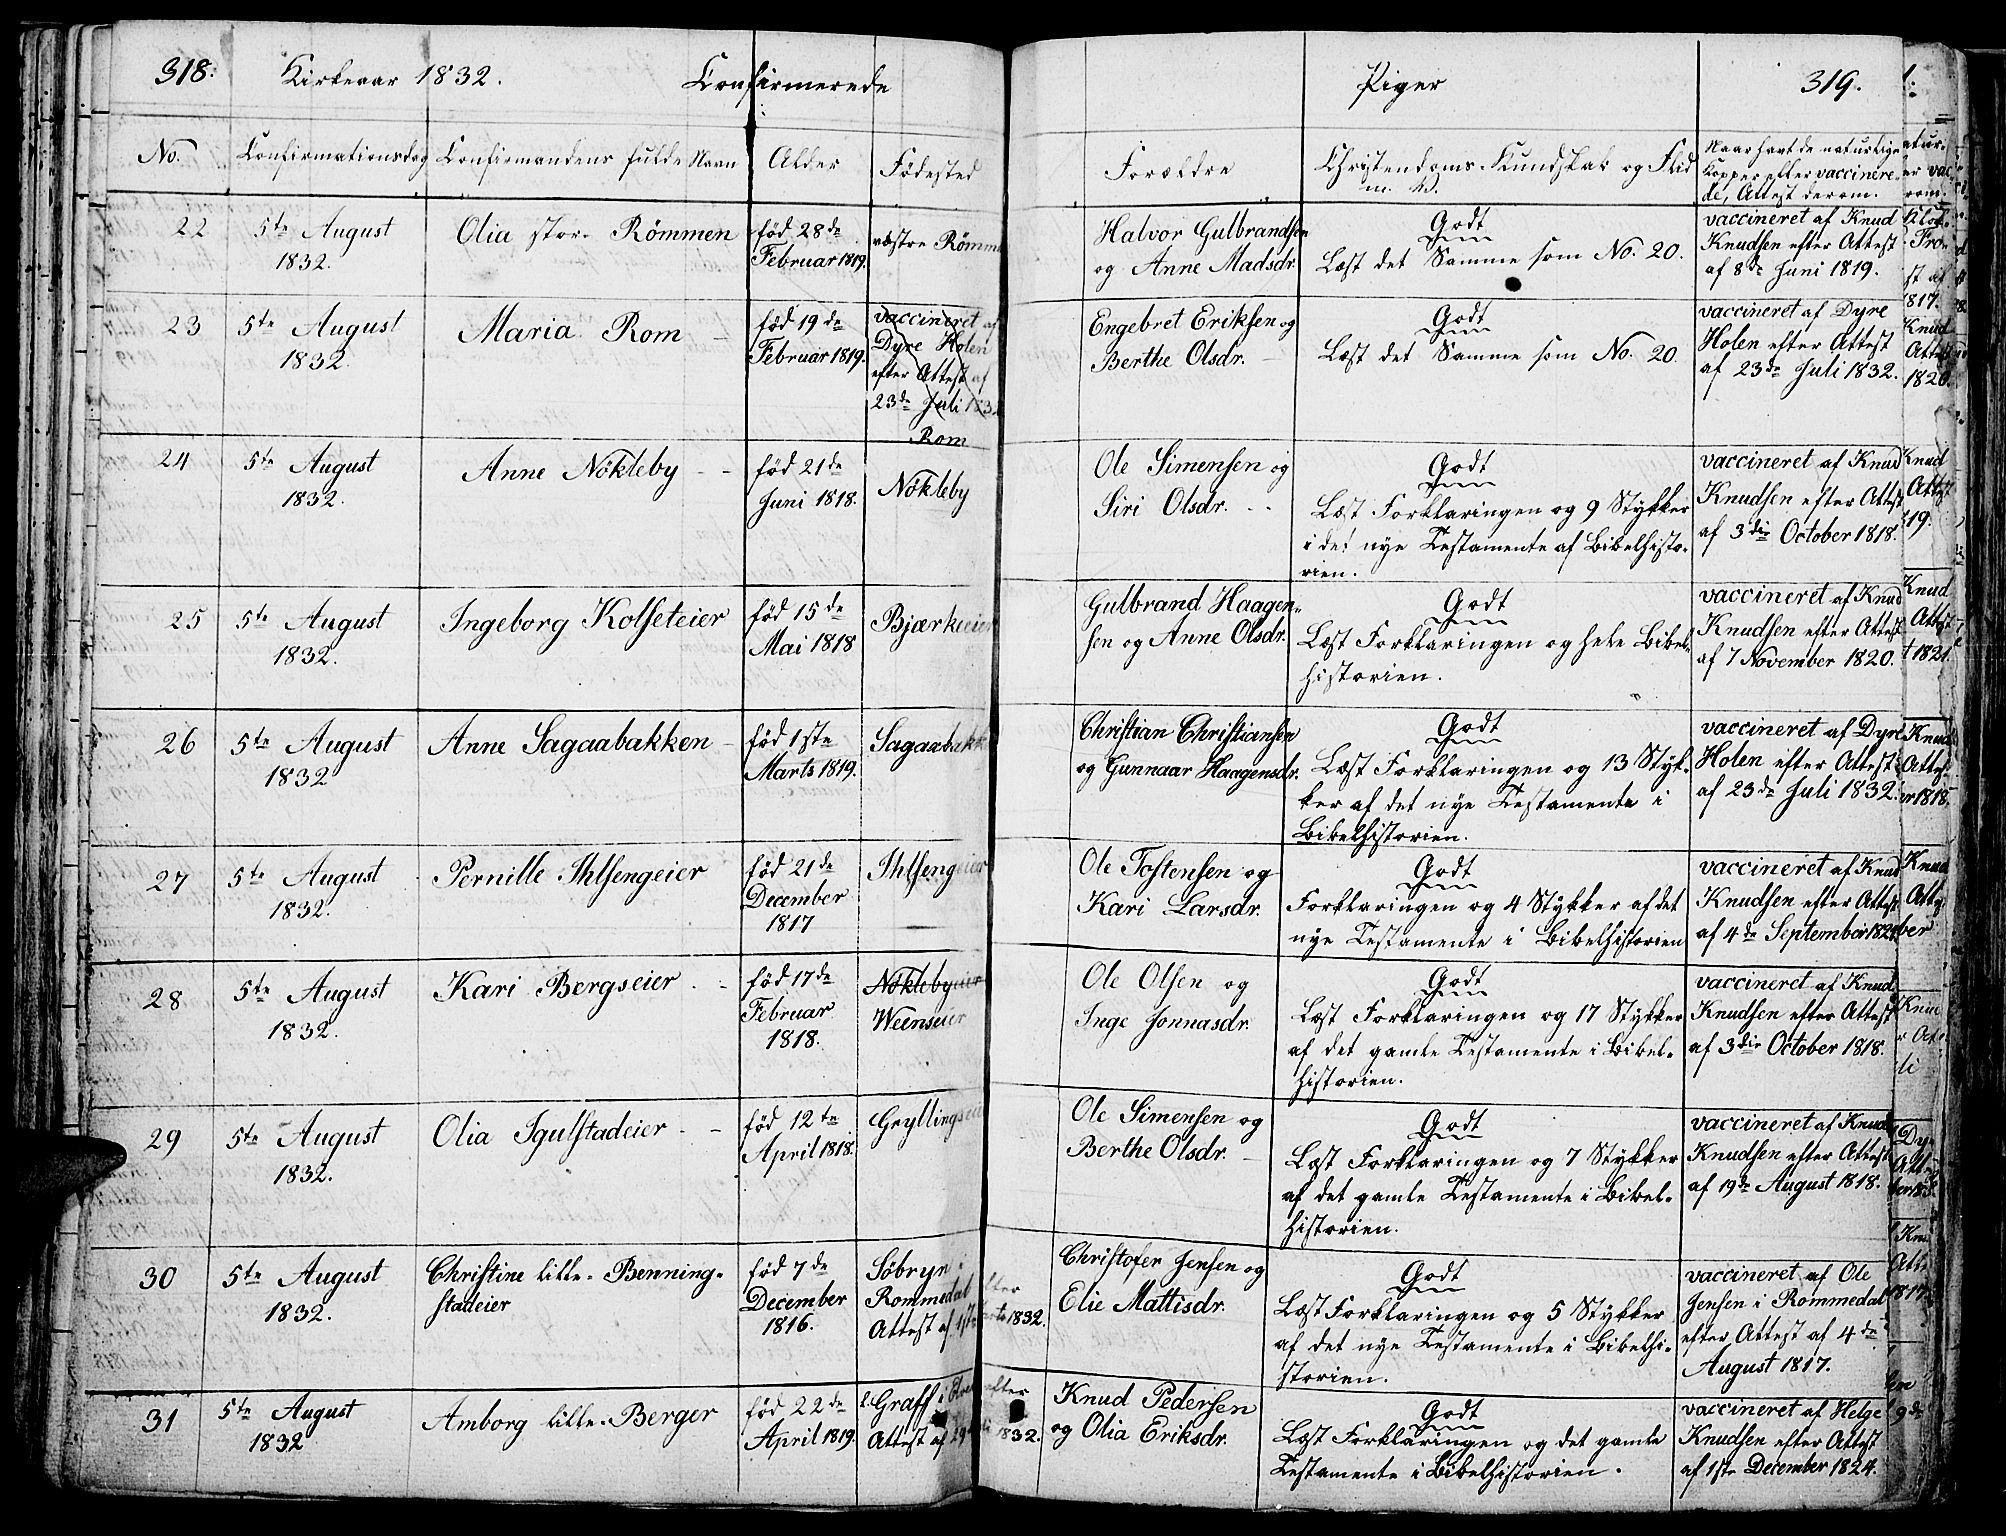 318. Kirkeaar 1832. Confirmerede Piger 319.
No. Confirmationsdag Confirmandens fulde Navn Alder Fødested Forældre Christendoms-Kundskab og Flid m. v. Naar havt de naturlige Kopper eller vaccinerede, Attest derom.
22 5te August Olia stor-Römmen född 28de væstre Römmen Halvor Gulbrandsen Godt vaccineret af Knud
1832. Februar 1819. og Anne Madsdr. Læst det Samme som No. 20. Knudsen efter Attest
af 8de Juni 1819.
23 5te August Maria Rom fød 19de vaccineret af Engebret Eriksen og Godt vaccineret af Dyre
1832. Februar 1819. Dyre Holen Berthe Olsdr. Læst det Samme som No. 20. Holen efter Attest
efter Attest af af 23de Juli 1832.
23de Juli 1832
Rom
24 5te August Anne Nökleby fød 21de Nökleby Ole Simensen og Godt vaccineret af Knud
1832. Juni 1818. Siri Olsdr. Læst Forklaringen og 9 Stykker Knudsen efter Attest
i det nye Testamente af Bibelhisto- af 3die October 1818.
rien.
25 5te August Ingeborg Kolseteier fød 15de Bjærkeeier Gulbrand Haagen- Godt vaccineret af Knud
1832. Mai 1818 sen og Anne Olsdr. Læst Forklaringen og hele Bibel- Knudsen efter Attest
historien. af 7 November 1820.
26 5te August Anne Sagaabakken fød 1ste Sagaabakk Christian Christiansen Godt vaccineret af Dyre
1832 Marts 1819. og Gunnaar Haagensdr. Læst Forklaringen og 13 Styk- Holen efter Attest
ker af det nye Testamente i af 23de Juli 1832.
Bibelhistorien.
27 5te August Pernille Ihlsengeier fød 21de Ihlsengeier Ole Tostensen og Godt vaccineret af Knud
1832. December Kari Larsdr. Forklaringen og 4 Stykker af det Knudsen efter Attest
1817 nye Testamente i Bibelhistorien af 4de September
28 5te August Kari Bergseier fød 17de Nöklebyeier Ole Olsen og Godt vaccineret af Knud
1832. Februar Weenseier Inge Jonnasdr. Læst Forklaringen og 17 Stykker Knudsen efter Attest
1818. af det gamle Testamente i Bibel- af 3die October 1818.
historien.
29 5te August Olia Igulstadeier fød 12te Gryllings Ole Simensen og Godt vaccineret af Knud
1832. April 1818. Berthe Olsdr. Læst Forklaringen og 7 Stykker Knudsen efter Attest
af det gamle Testamente i Bibel- af 19de August 1818.
historien.
30 5te August Christine lille-Benning- fød 7de Söbryn i Christofer Jensen og Godt vaccineret af Ole
1832. stadeier December Rommedal efter Elie Mattisdr. Læst Forklaringen og 5 Stykker Jensen i Rommedal
1816. Attest af 1ste Marts 1832. af det nye Testamente i Bibelhi- efter Attest af 4de
storien. August 1817.
31 5te August Amborg lille-Berger fød 22de Graff i efter Knud Pedersen Godt vaccineret af Helge
1832 April 1819. Attest af 29de 1832. og Olia Eriksdr. Læst Forklaringen og det gamle Knudsen efter Attest
Testamente i Bibelhistorien. af 1ste December 1824.